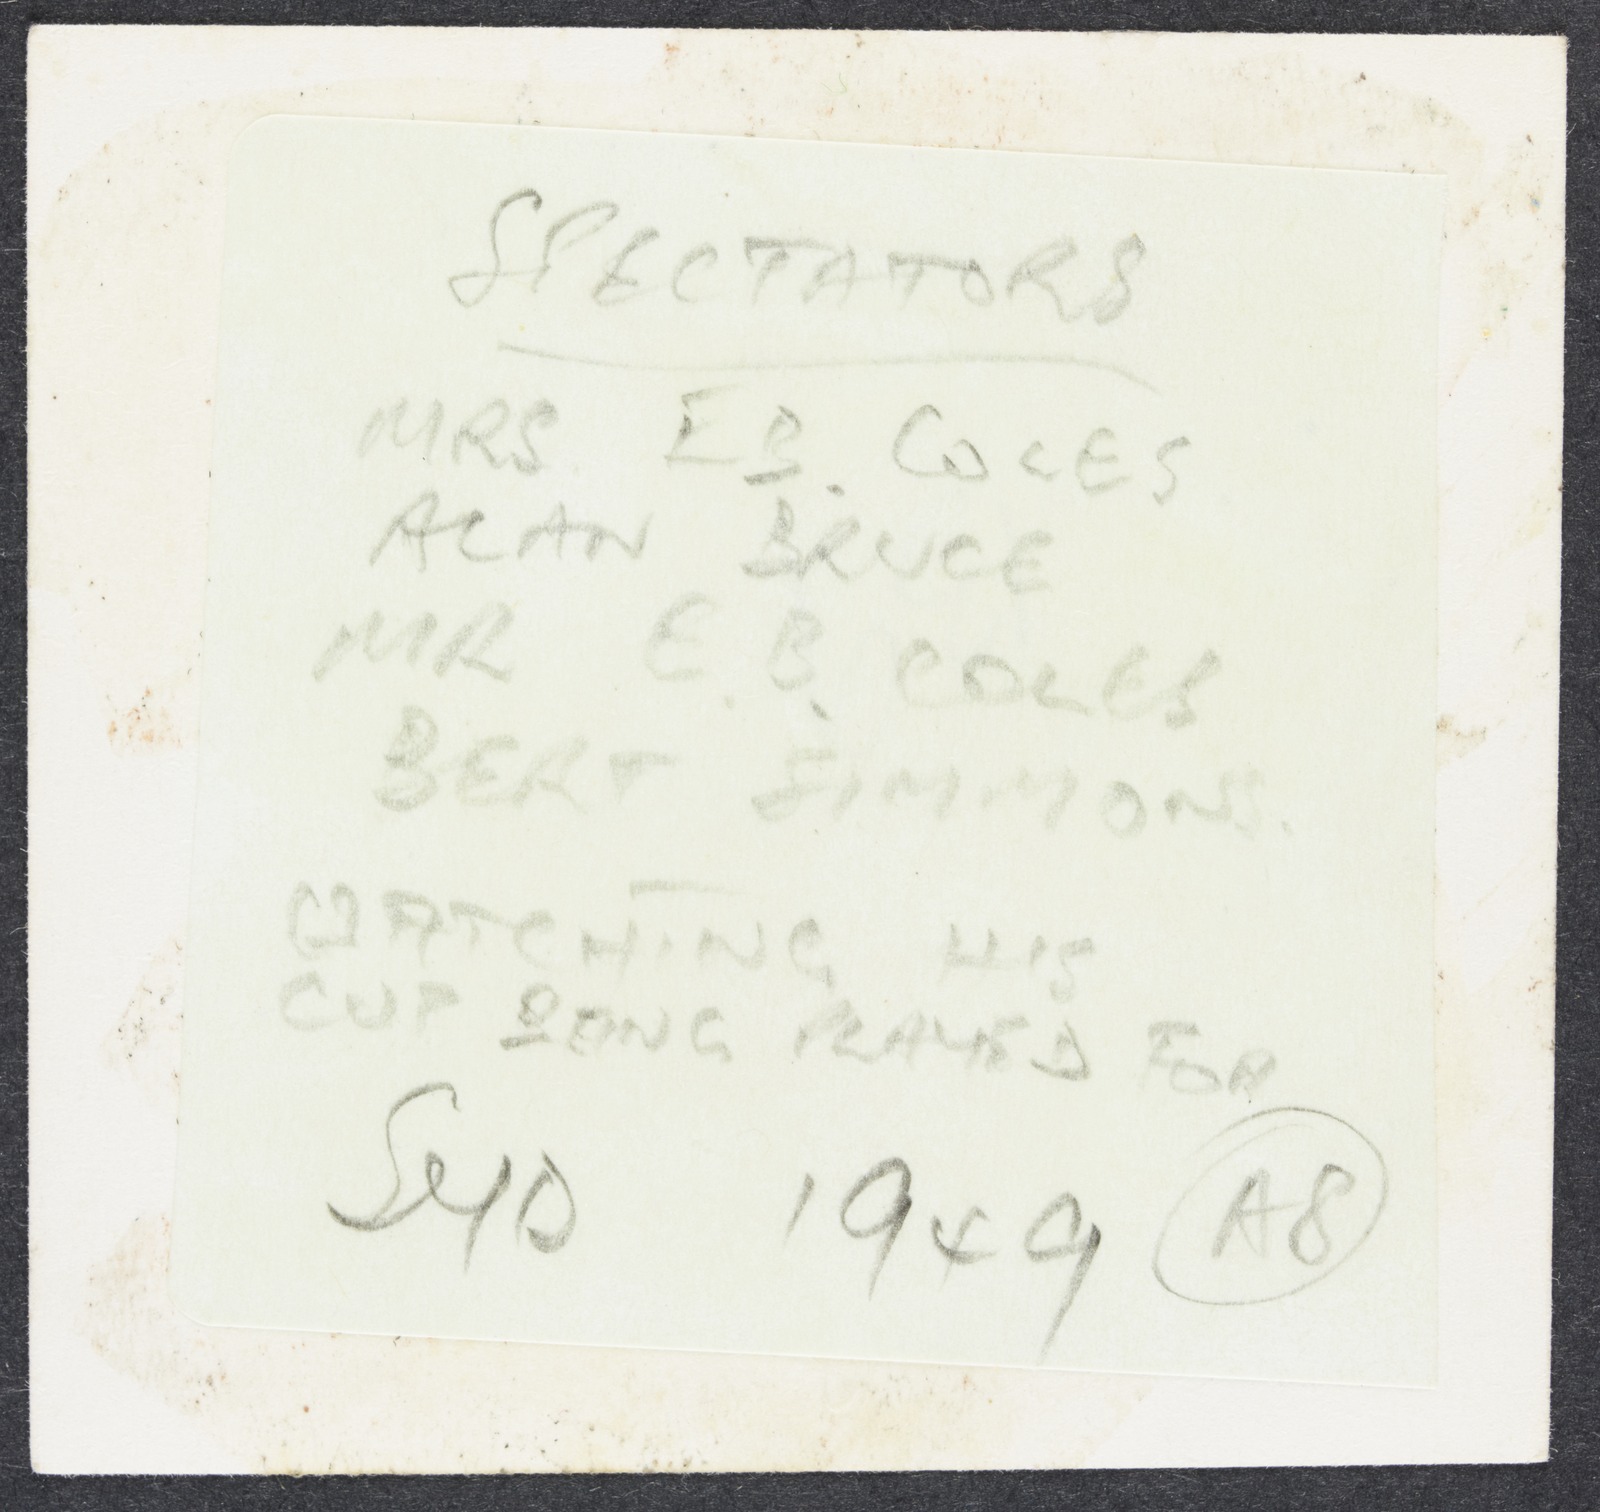 SPECTATORS
MRS E.B. COLES
ALAN BRUCE
MR E.B. COLES
BERT SIMMONS.
WATCHING HIS
CUP BEING PLAYED FOR
SYD 1949 A8